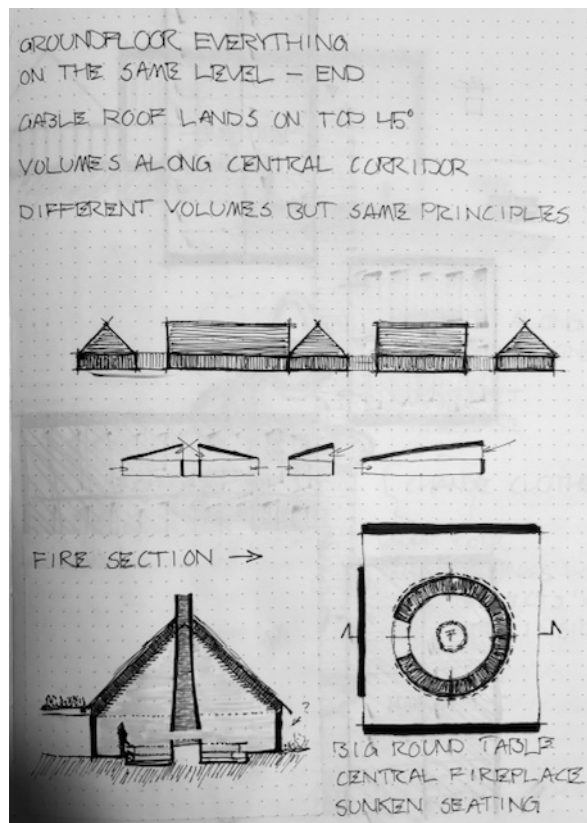 GROUNDFLOOR EVERYTHING
ON THE SAME LEVEL – END
GABLE ROOF LANDS ON TOP 45°
VOLUMES ALONG CENTRAL CORRIDOR
DIFFERENT VOLUMES BUT SAME PRINCIPLES
FIRE SECTION →
?
F
BIG ROUND TABLE
CENTRAL FIREPLACE
SUNKEN SEATING